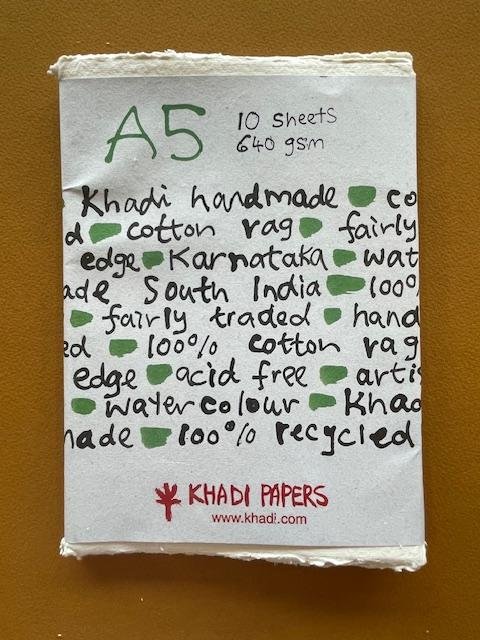 A5
10 sheets
640 gsm
Khadi handmade co
d cotton rag fairly
edge Karnataka wat
ade South India 100%
fairly traded hand
ed 100% cotton rag
edge acid free arti
watercolour Khad
made 100% recycled
KHADI PAPERS
www.khadi.com